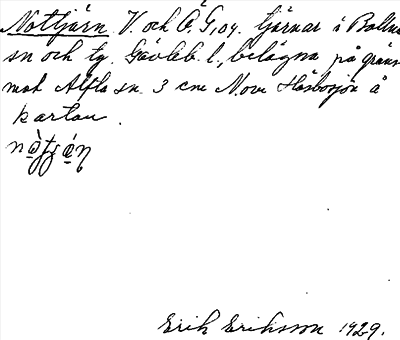 Nottjärn V. och Ö. G, og. tjärnar i Bolln
sn och tg. Gävleb. l., belägna på gräns
mot Alfta sn. 3 cm N.om Häsbosjön å
kartan.
Erik Eriksson 1929.